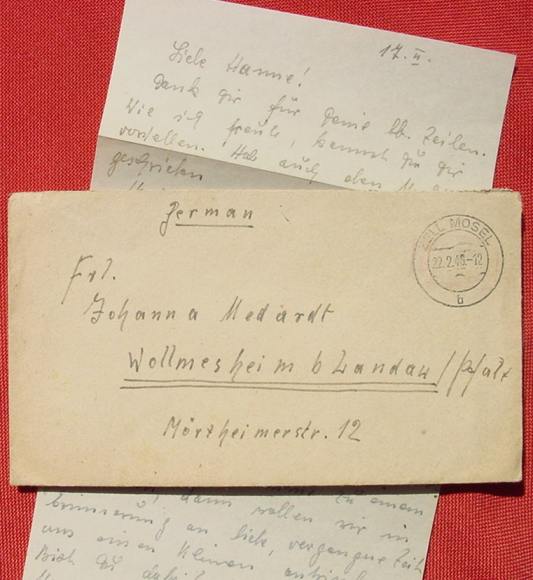 17. II.
Liebe Hanne!
Dank Dir für Deine lb. Zeilen.
Wie ich freute, kannst Du Dir
vorstellen. Hab auch eben
geschrieben
German
ZELL MOSEL
22.2.46-12
b
Frl.
Johanna Medardt
Wollmesheim b Landau/Pfalz
Mörzheimerstr. 12
dann wollen wir in
Erinnerung an liebe, vergangene Zeit
uns einen kleinen